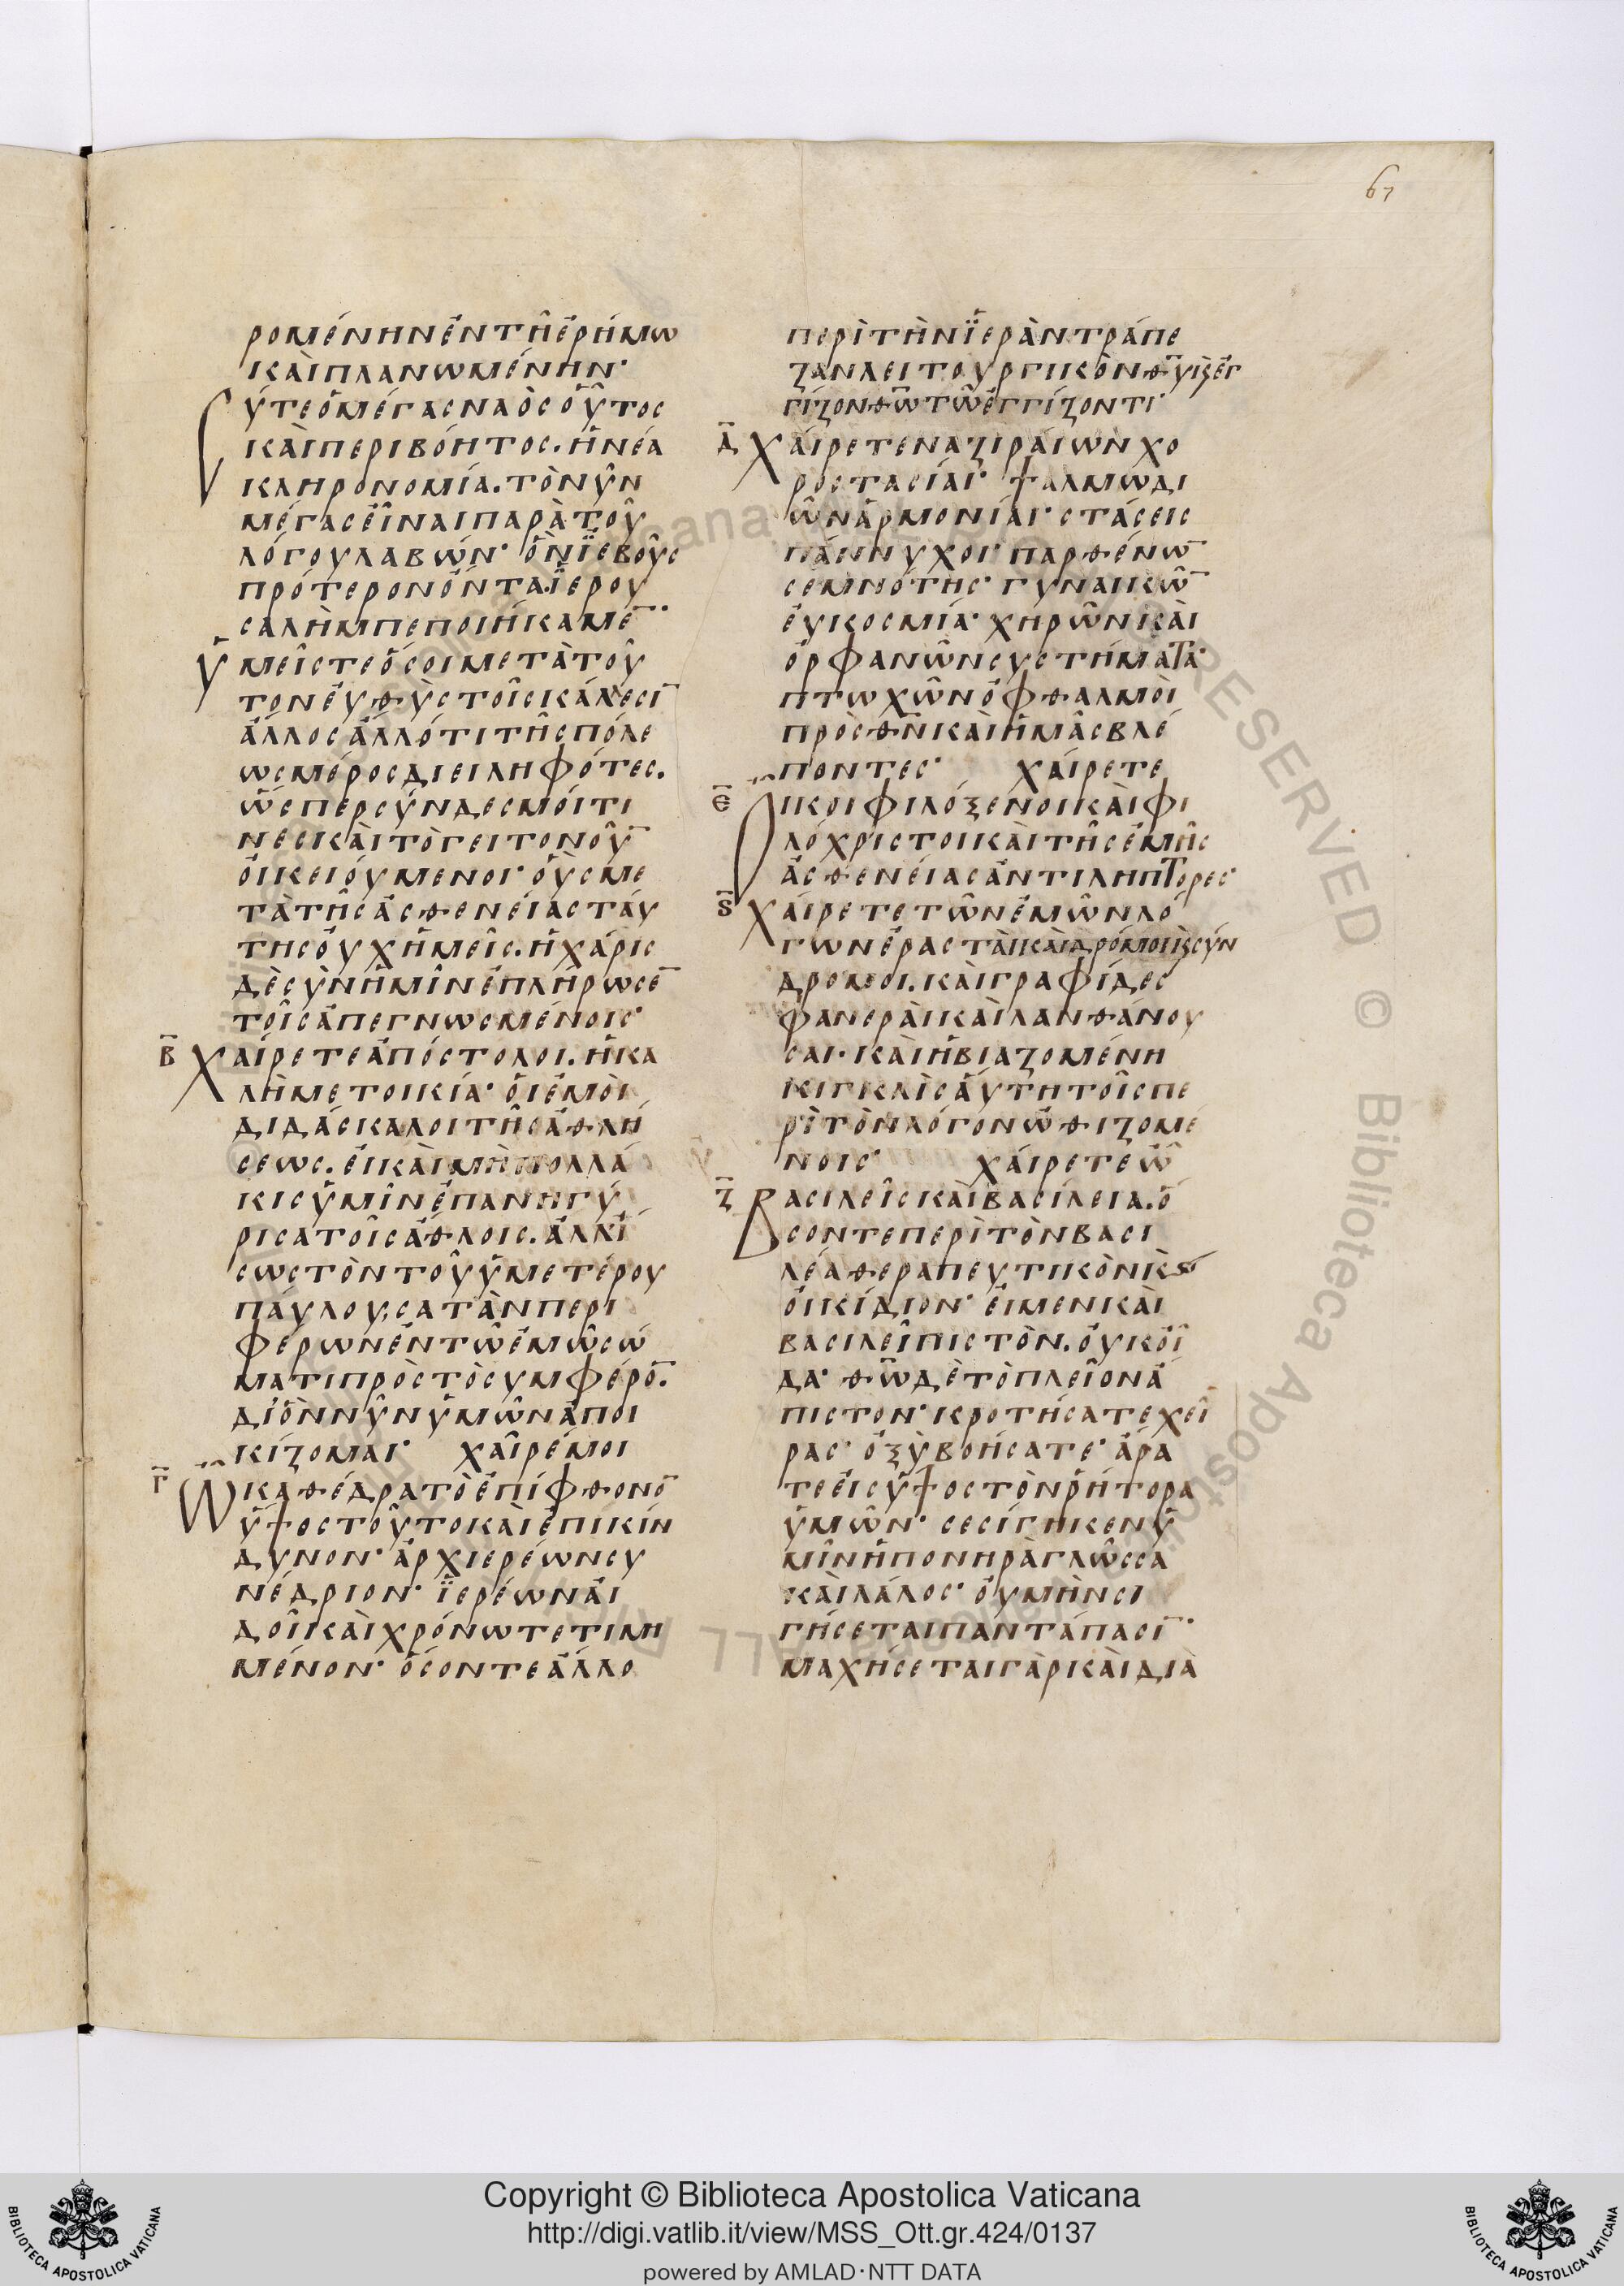 67
ρομένηνἐντῆἐρήμω
καὶπλανωμένην·
ὕτεὁμέγαςναὸςοὗτος
καὶπεριβόητος.ἡνέα
κληρονομία.τὸνῦν
μέγαςεἶναιπαρὰτοῦ
λόγουλαβών·ὃνϊεβοῦς
πρότερονὄντα.ϊερου
σαλὴμπεποιήκαμε̅·
ὑμεῖςτεὅσοιμετὰτοῦ
τονεὐθὺςτοῖςκάλεσι̅
ἄλλοςἄλλότιτῆςπόλε
ωςμέροςδιειληφότες.
ὥςπερσύνδεσμοίτι
νεςκαὶτὸγειτονοῦ̅
οἰκειούμενοι·οὓςμε
τὰτῆςἀσθενείαςταύ
τηςοὐχἡμεῖς.ἡχάρις
δὲσὺνἡμῖνἐπλήρωσε̅
τοῖςἀπεγνωσμένοις·
β̅
χαίρετεἀπόστολοι.ἡκα
λὴμετοικία·οἱἐμοὶ
διδάσκαλοιτῆςἀθλή
σεως.εἰκαὶμὴπολλά
κιςὑμῖνἐπανηγύ
ρισατοῖςἄθλοις.ἀλλί
σωςτὸντοῦὑμετέρου
παύλου,σατὰνπερι
φέρωνἐντῶἐμῶσώ
ματιπρὸςτὸσυμφέρο̅.
δϊὃννῦνὑμῶνἀποι
κίζομαι· χαῖρέμοι
γ̅
ὦκαθέδρατὸἐπίφθονο̅
ὕψοςτοῦτοκαὶἐπικίν
δυνον·ἀρχιερέωνσυ
νέδριον·ϊερέωναἰ
δοῖκαὶχρόνωτετιμη
μένον·ὅσοντεἄλλο
περὶτὴνϊερὰντράπε
ζανλειτουργικὸνθ̅υϗἐγ
γίζονθ̅ωτῶἐγγίζοντι·
δ̅
χαίρετεναζιραίωνχο
ροστασίαι·ψαλμωδι
ῶνἁρμονίαι·στάσεις
πάννυχοι·παρθένω̅
σεμνότης·γυναικῶ̅
εὐκοσμία·χηρῶνκαὶ
ὀρφανῶνσυστήματα·
πτωχῶνὀφθαλμοὶ
πρὸςθ̅νκαὶἡμᾶςβλέ
ποντες· χαίρετε
ε̅
οἶκοιφιλόξενοικαὶφι
λόχριστοικαὶτῆςἐμῆς
ἀσθενείαςἀντιλήπτορες·
ς̅
χαίρετετῶνἐμῶνλό
γωνἐρασταὶκαὶδρόμοιϗσύν
δρομοι.καὶγραφίδες
φανεραὶκαὶλανθάνου
σαι·καὶἡβιαζομένη
κιγκλὶςαὕτητοῖςπε
ρὶτὸνλόγονὠθιζομέ
νοις· χαίρετεὦ
ζ̅
βασιλεῖςκαὶβασίλεια.ὅ
σοντεπερὶτὸνβασι
λέαθεραπευτικὸνκς
οἰκίδιον·εἰμενκαὶ
βασιλεῖπιστὸν.οὐκοἶ
δα·θ̅ωδὲτὸπλεῖονἄ
πιστον·κροτήσατεχεῖ
ρας·ὀξὺβοήσατε·ἄρα
τεεἰςὕψοςτὸνῥήτορα
ὑμῶν·σεσίγηκενὑ
μῖνἡπονηρὰγλῶσσα
καὶλάλος·οὐμὴνσι
γήσεταιπαντάπασι̅·
μαχήσεταιγὰρκαὶδιὰ
ALL RIGHTS RESERVED © Biblioteca Apostolica Vaticana
Copyright © Biblioteca Apostolica Vaticana
http://digi.vatlib.it/view/MSS_Ott.gr.424/0137
powered by AMLAD·NTT DATA
BIBLIOTECA APOSTOLICA VATICANA
BIBLIOTECA APOSTOLICA VATICANA